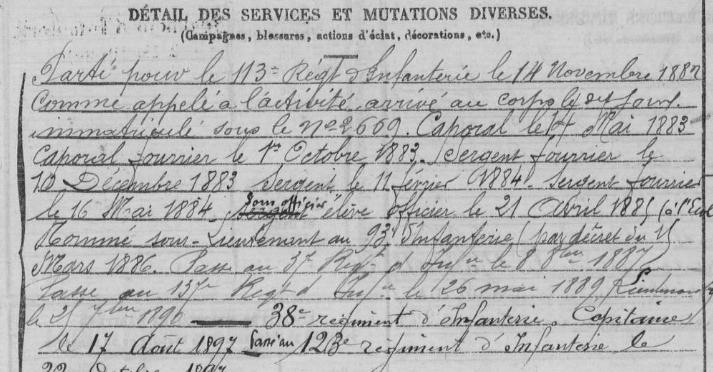 DÉTAIL DES SERVICES ET MUTATIONS DIVERSES.
(Campagnes, blessures, actions d'éclat, décorations, etc.)
Parti pour le 113e Régt d'Infanterie le 14 Novembre 1882
Comme appelé à l'activité, arrivé au corps le dit jour,
immatriculé sous le No 2669. Caporal le 14 Mai 1883
Caporal fourrier le 1er Octobre 1883. Sergent fourrier le
10 Décembre 1883 Sergent le 11 février 1884. Sergent fourrier
le 16 Mai 1884, Sous officier élève officier le 21 Avril 1885 (à l'Ecol
Nommé sous-Lieutenant au 93e d'Infanterie (par décret du 15
Mars 1886. Passe au 37e Régt d'Infie le 8 8bre 1887
Passe au 137e Régt d'Infie le 26 mai 1889 Lieutenant
le 25 7bre 1890 38e régiment d'Infanterie. Capitaine
le 17 Août 1897 Passé au 123e régiment d'Infanterie le
22 Octobre 1897